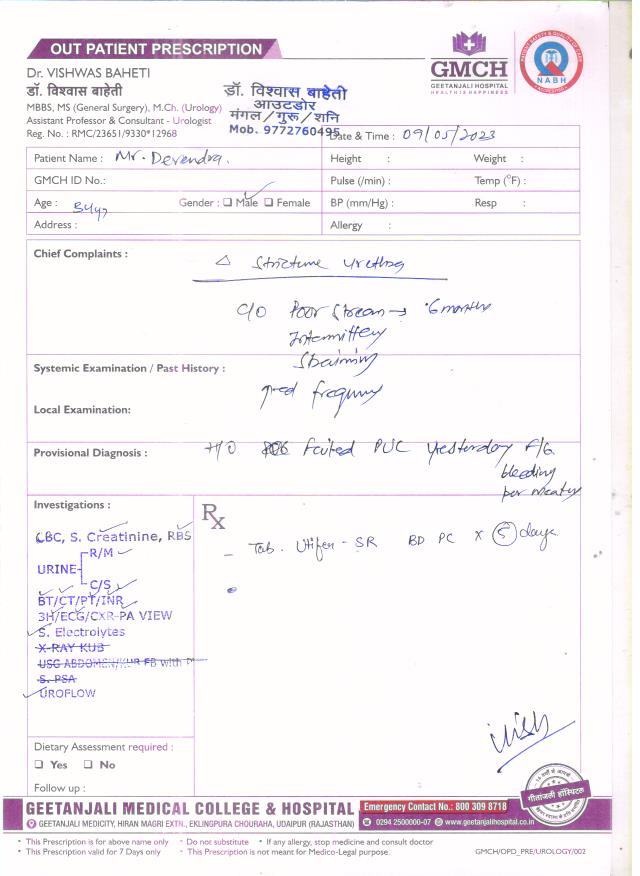 OUT PATIENT PRESCRIPTION
GMCH
GEETANJALI HOSPITAL
HEALTH IS HAPPINESS
NABH
Dr. VISHWAS BAHETI
डॉ. विश्वास बाहेती
MBBS, MS (General Surgery), M.Ch. (Urology)
Assistant Professor & Consultant - Urologist
Reg. No. : RMC/23651/9330*12968
डॉ. विश्वास बाहेती
आउटडोर
मंगल/गुरू/शनि
Mob. 9772760495
Date & Time : 09/05/2023
Patient Name : Mr. Devendra.
Height : Weight :
GMCH ID No.:
Pulse (/min) : Temp (°F) :
Age : 34y Gender : ☐ Male ☐ Female
BP (mm/Hg) : Resp :
Address :
Allergy :
Chief Complaints :
△ Stricture Urethra
C/O Poor Stream → 6 months
Intermittency
Straining
Systemic Examination / Past History :
↑red frequency
Local Examination:
Provisional Diagnosis :
H/O Failed PUC yesterday F/b
bleeding
per meatus
Investigations :
Rx
CBC, S. Creatinine, RBS
R/M
URINE
C/S
BT/CT/PT/INR
3H/ECG/CXR-PA VIEW
S. Electrolytes
X-RAY KUB
USG ABDOMEN/KUB FB with
S. PSA
UROFLOW
- Tab. SR BD PC x 5 days
Dietary Assessment required :
☐ Yes ☐ No
Follow up :
गीतांजली हॉस्पिटल
GEETANJALI MEDICAL COLLEGE & HOSPITAL
Emergency Contact No.: 800 309 8718
GEETANJALI MEDICITY, HIRAN MAGRI EXTN., EKLINGPURA CHOURAHA, UDAIPUR (RAJASTHAN)
0294 2500000-07 www.geetanjalihospital.co.in
• This Prescription is for above name only • Do not substitute • If any allergy, stop medicine and consult doctor
• This Prescription valid for 7 Days only • This Prescription is not meant for Medico-Legal purpose.
GMCH/OPD_PRE/UROLOGY/002